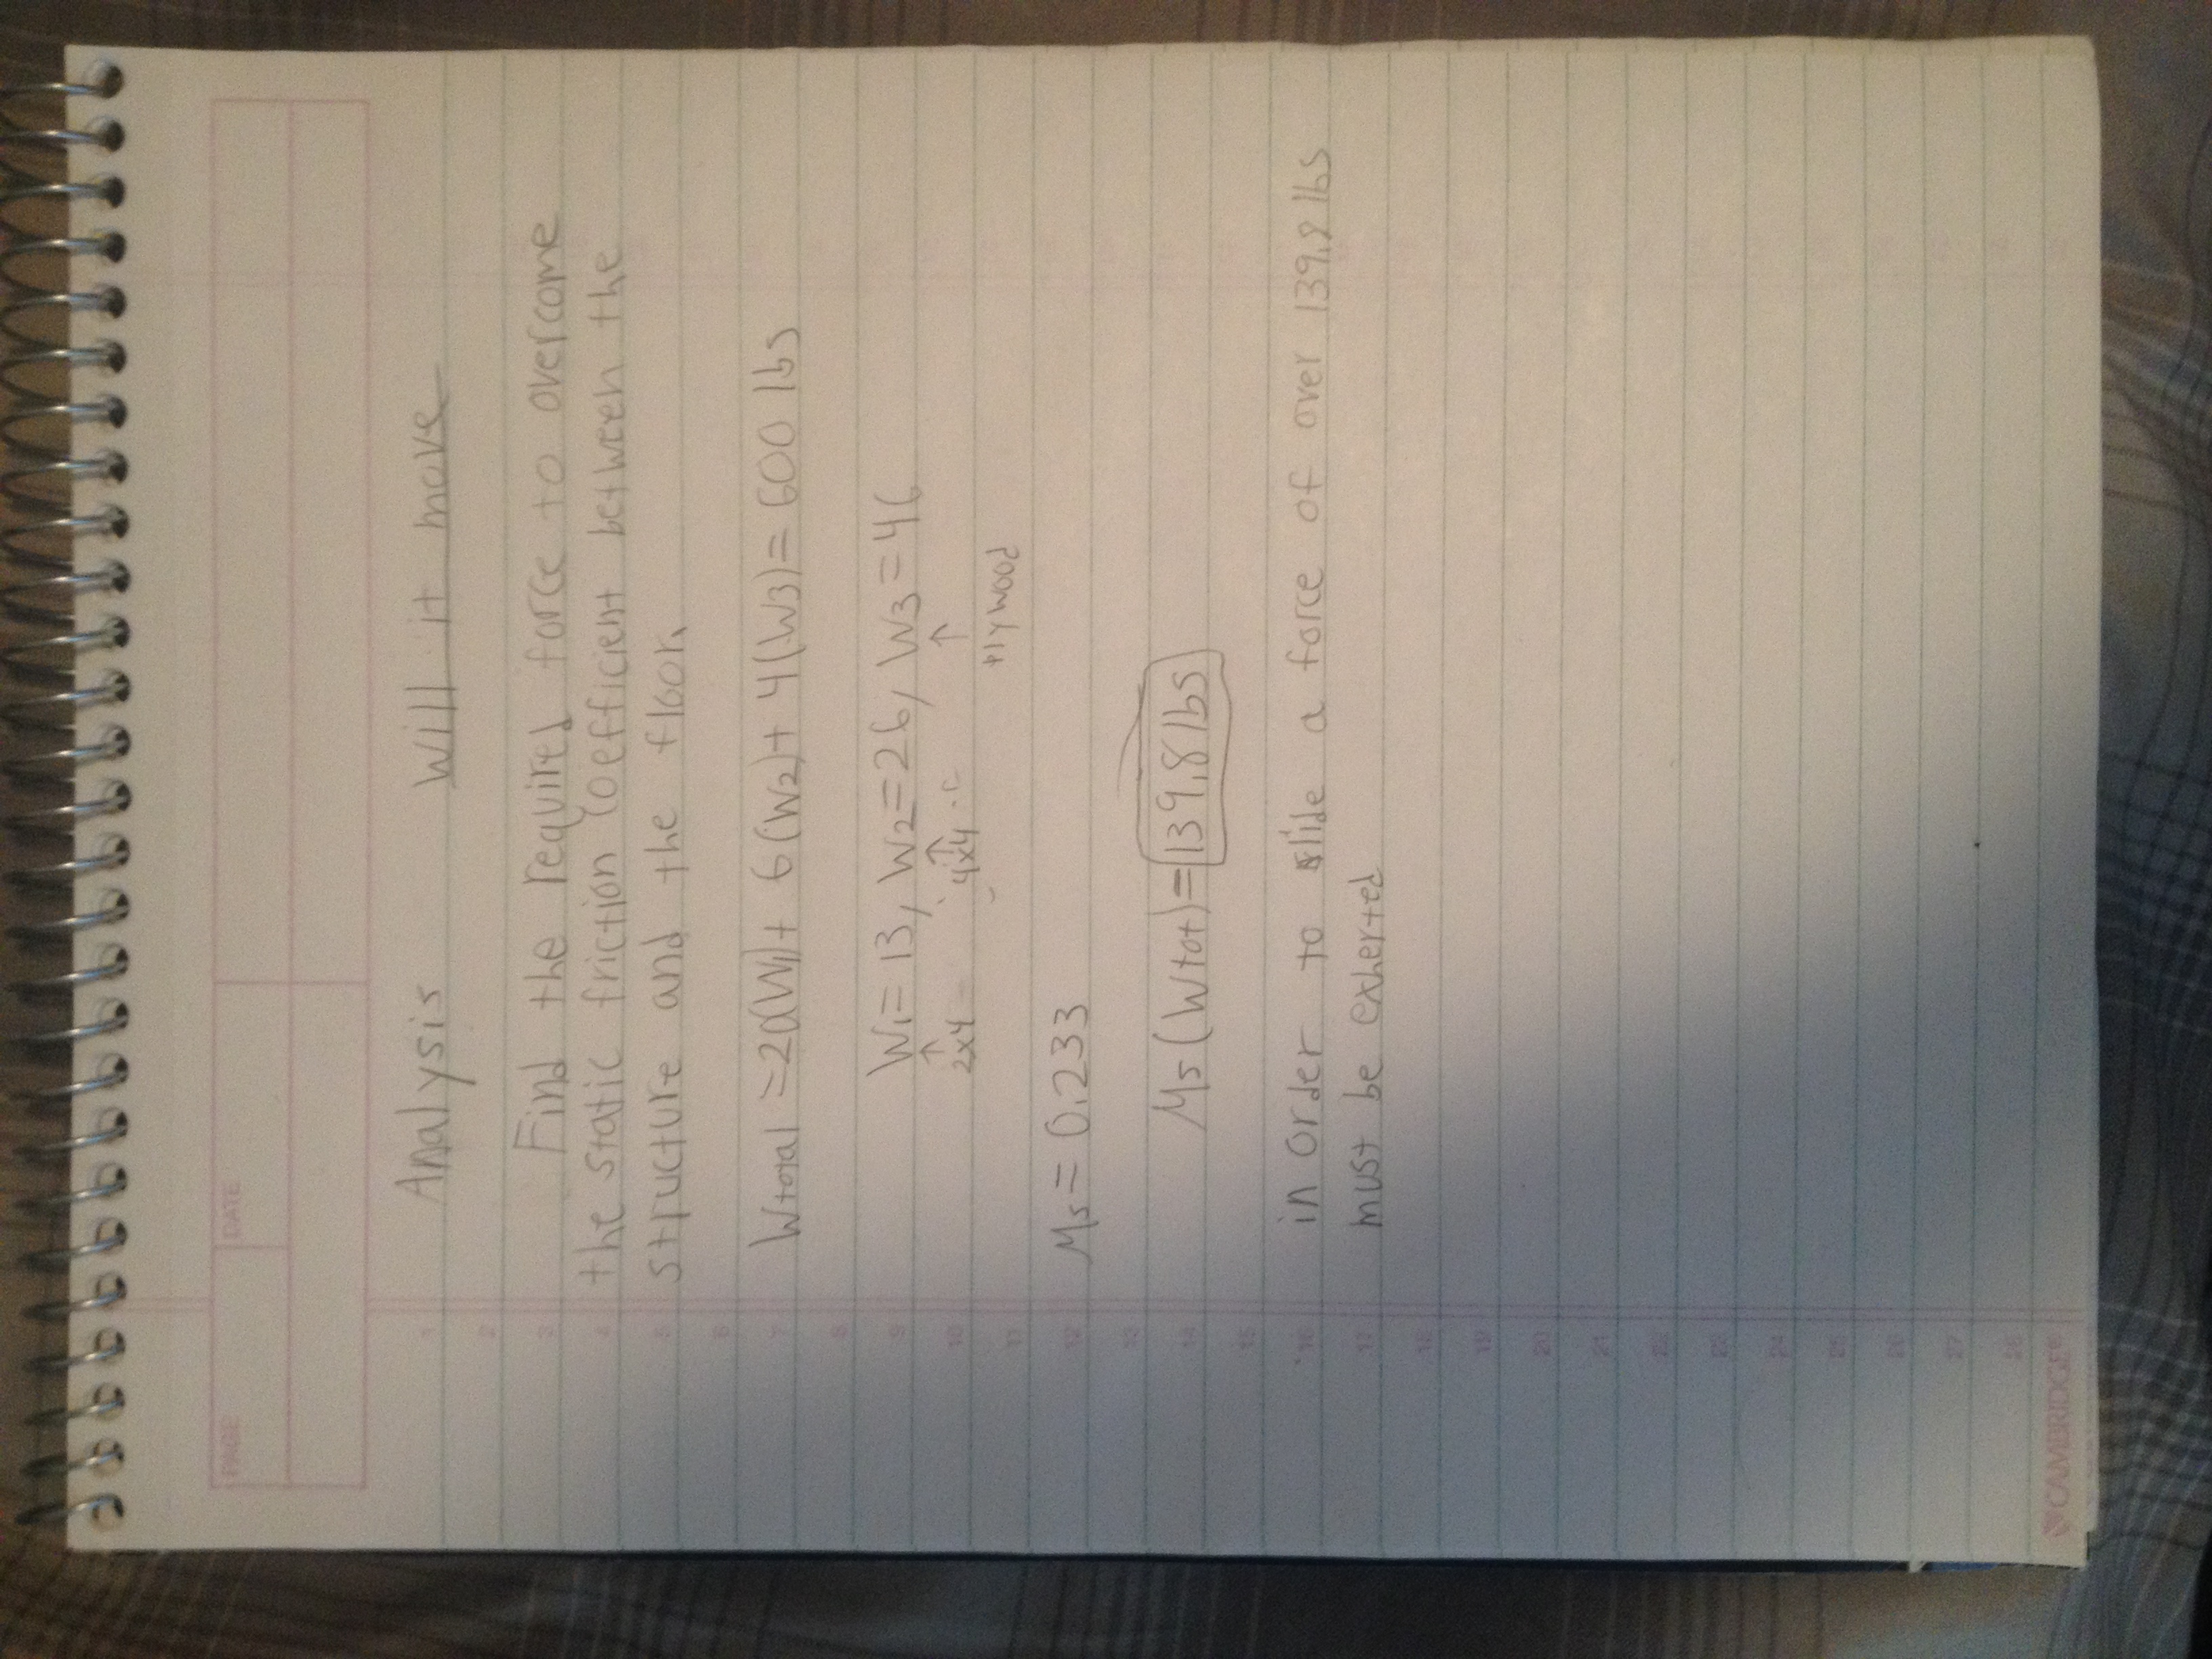 PAGE DATE
1 Analysis Will it move
2
3 Find the required force to overcome
4 the static friction coefficient between the
5 structure and the floor.
6
7 Wtotal = 20(W1) + 6(W2) + 4(W3) = 600 lbs
8
9 W1 = 13, W2 = 26, W3 = 46
↑ ↑ ↑
10 2x4 4x4
plywood
11
12 Ms = 0.233
13
14 Ms (Wtot) = 139.8 lbs
15
16 in order to slide a force of over 139.8 lbs
17 must be exherted
18
19
20
21
22
23
24
25
26
27
28
CAMBRIDGE®